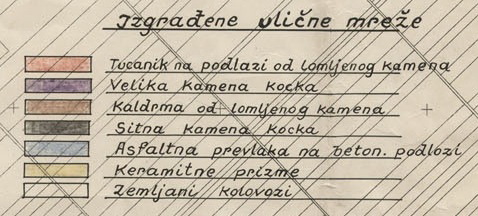 Izgrađene ulične mreže
Tucanik na podlazi od lomljenog kamena
Velika kamena kocka
Kaldrma od lomljenog kamena
Sitna kamena kocka
Asfaltna prevlaka na beton. podlozi
Keramitne prizme
Zemljani kolovozi